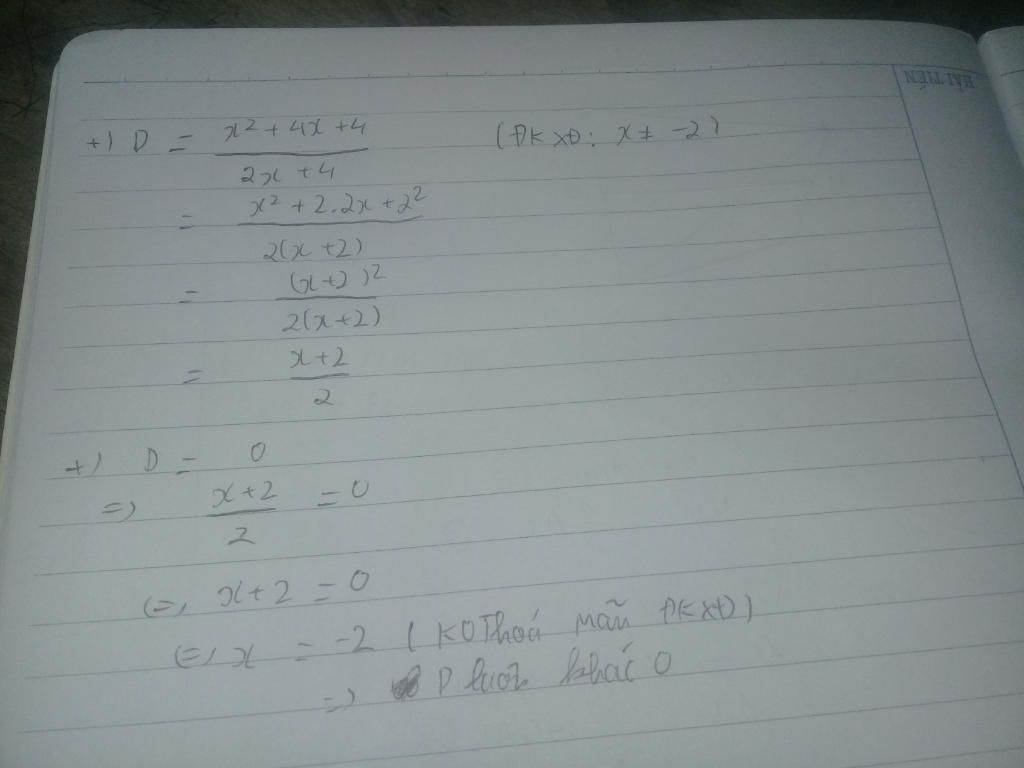 HẢI TIẾN
+) D = \frac{x² + 4x + 4}{2x + 4} (ĐKXĐ: x ≠ -2)
= \frac{x² + 2.2x + 2²}{2(x + 2)}
= \frac{(x + 2)²}{2(x + 2)}
= \frac{x + 2}{2}
+) D = 0
=> \frac{x + 2}{2} = 0
<=> x + 2 = 0
<=> x = -2 ( KO Thoả mãn ĐKXĐ)
=> D luôn khác 0